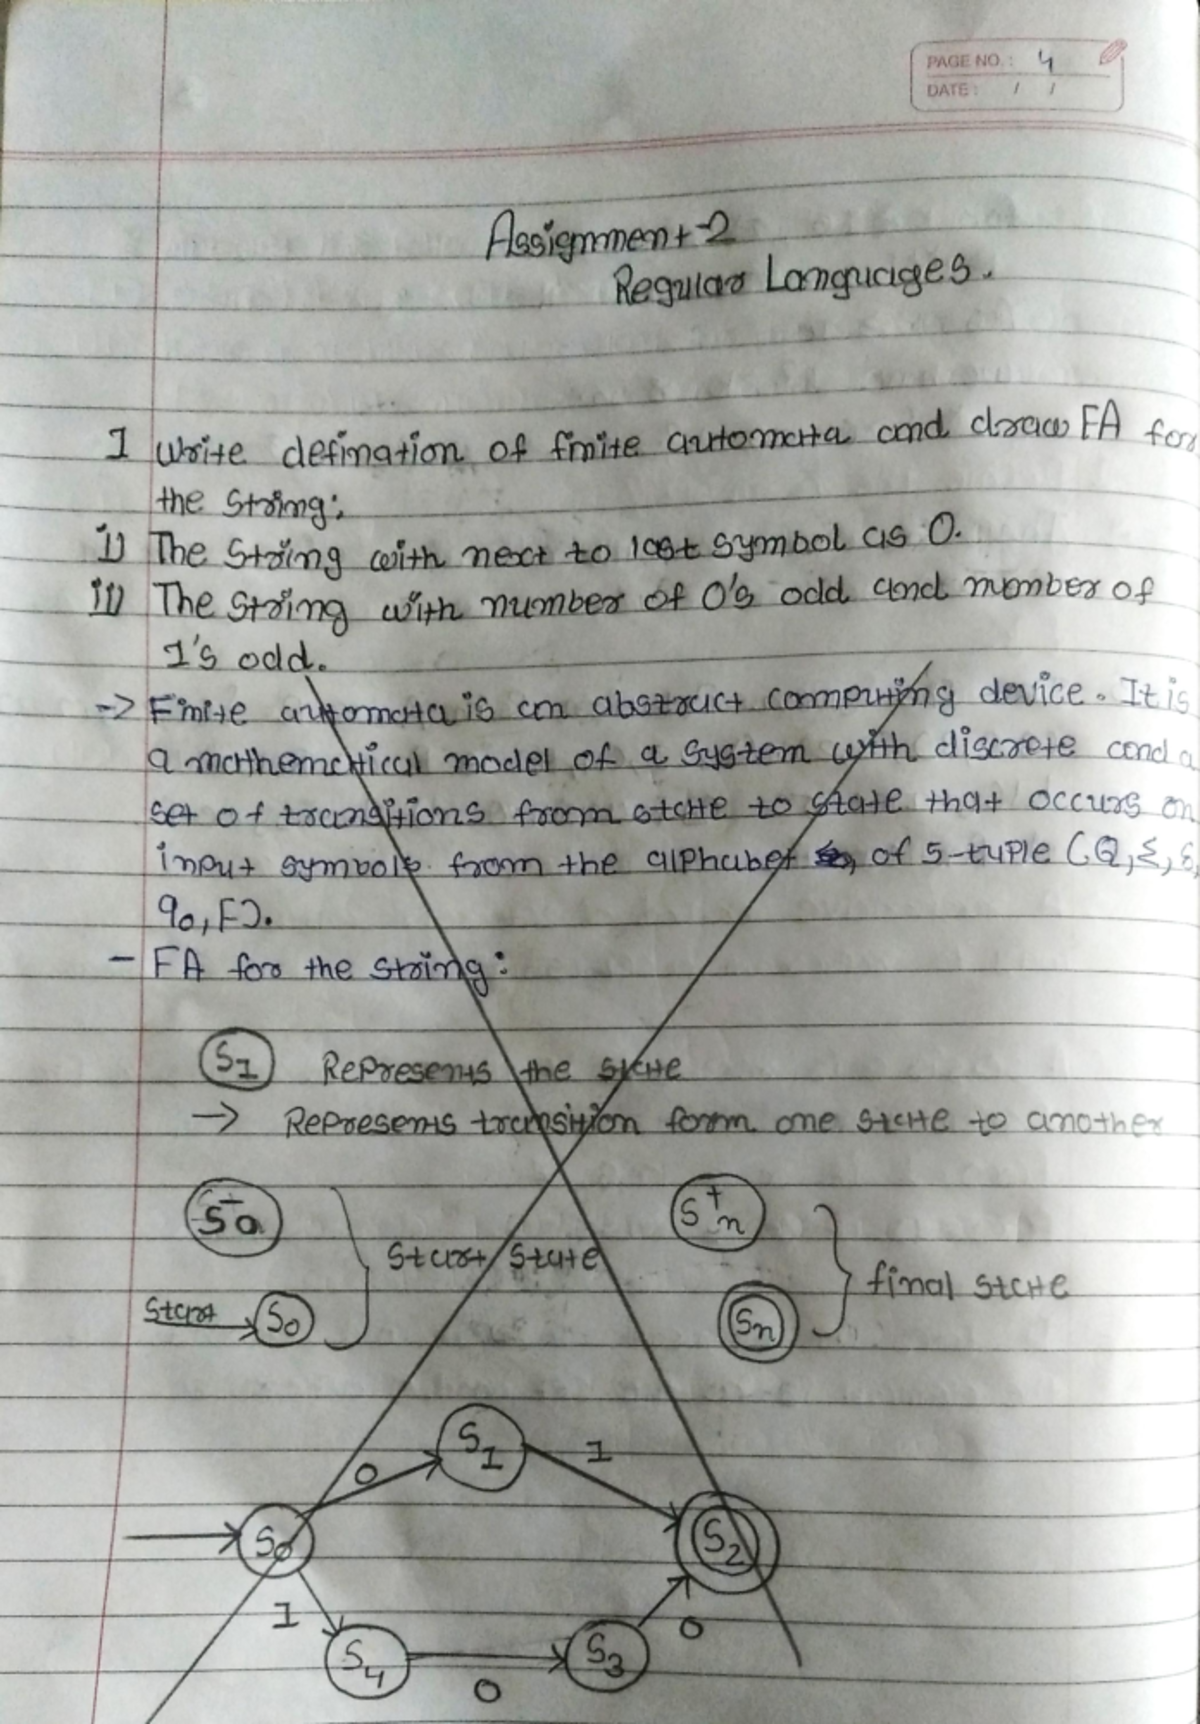 PAGE NO.: 4
DATE: / /
Assignment-2
Regular Languages.
I Write defination of finite automata and draw FA for
the string:
i) The string with next to last symbol as 0.
ii) The string with number of 0's odd and number of
1's odd.
-> Finite automata is an abstract computing device. It is
a mathematical model of a system with discrete and a
set of transitions from state to state that occurs on
input symbols from the alphabet of 5-tuple (Q, Σ, δ,
q0, F).
- FA for the string:
S1 Represents the state
→ Represents transition form one state to another
S-0 S+n
Start state final state
Start S0 Sn
S1
0 1
S0 S2
1 0
S4 S3
0